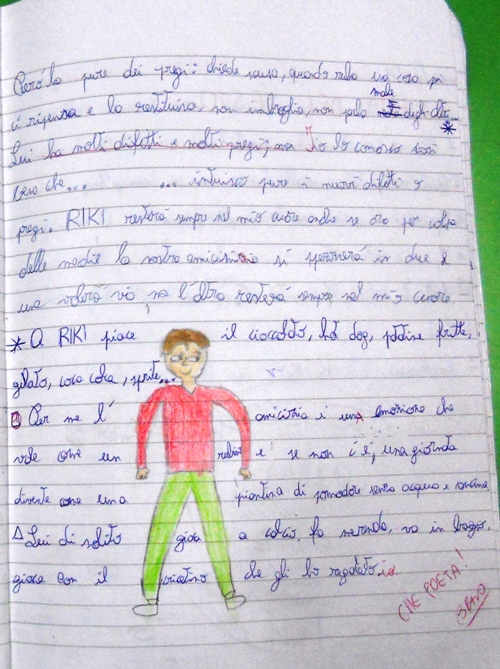 Però ha pure dei pregi: chiede scusa, quando ruba una cosa poi
ci ripensa e la restituisce, non imbroglia, non parla male degli altri. *
Lui ha molti difetti e molti pregi; ma Io lo conosco così
bene che... ... intuisco pure i nuovi difetti o
pregi. RIKI resterà sempre nel mio cuore anche se ora per colpa
delle medie la nostra amicizia si spezzerà in due e
una volerà via ma l'altra resterà sempre nel mio cuore.
* A RIKI piace il cioccolato, hot dog, patatine fritte,
gelato, coca cola, sprite,...
Per me l'amicizia è una emozione che
vale come un rubino e se non c'è, una giornata
diventa come una piantina di pomodoro senza acqua e
Δ Lui di solito gioca a calcio, fa merenda, va in bagno,
gioca con il che gli ho regalato io.
CHE POETA!
BRAVO